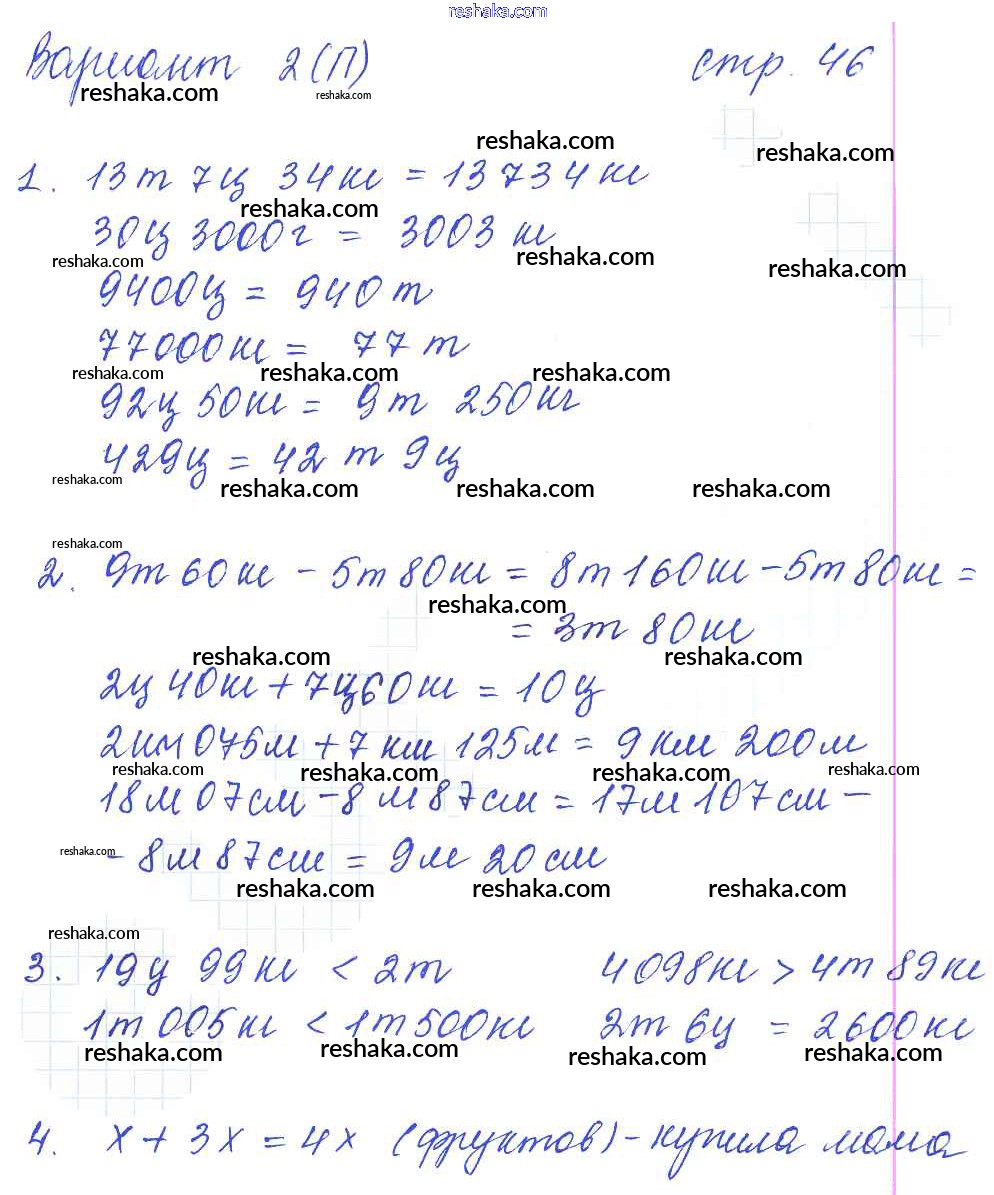 reshaka.com
Вариант 2(П) стр. 46
reshaka.com reshaka.com
reshaka.com reshaka.com
1. 13т 7ц 34кг = 13734кг
reshaka.com
30ц 3000г = 3003 кг
reshaka.com reshaka.com reshaka.com
9400ц = 940 т
77000кг = 77 т
reshaka.com reshaka.com reshaka.com
92ц 50кг = 9т 250кг
429ц = 42 т 9ц
reshaka.com reshaka.com reshaka.com reshaka.com
reshaka.com
2. 9т 60кг - 5т 80кг = 8т 160кг - 5т 80кг =
reshaka.com
= 3т 80кг
reshaka.com reshaka.com
2ц 40кг + 7ц 60кг = 10ц
2км 075м + 7 км 125м = 9 км 200м
reshaka.com reshaka.com reshaka.com reshaka.com
18м 07см - 8 м 87см = 17м 107см -
- 8м 87см = 9м 20см
reshaka.com
reshaka.com reshaka.com reshaka.com
reshaka.com
3. 19ц 99кг < 2т 4098кг > 4т 89кг
1т 005кг < 1т 500кг 2т 6ц = 2600кг
reshaka.com reshaka.com reshaka.com reshaka.com
4. х + 3х = 4х (фруктов) - купила мама
reshaka.com reshaka.com reshaka.com reshaka.com